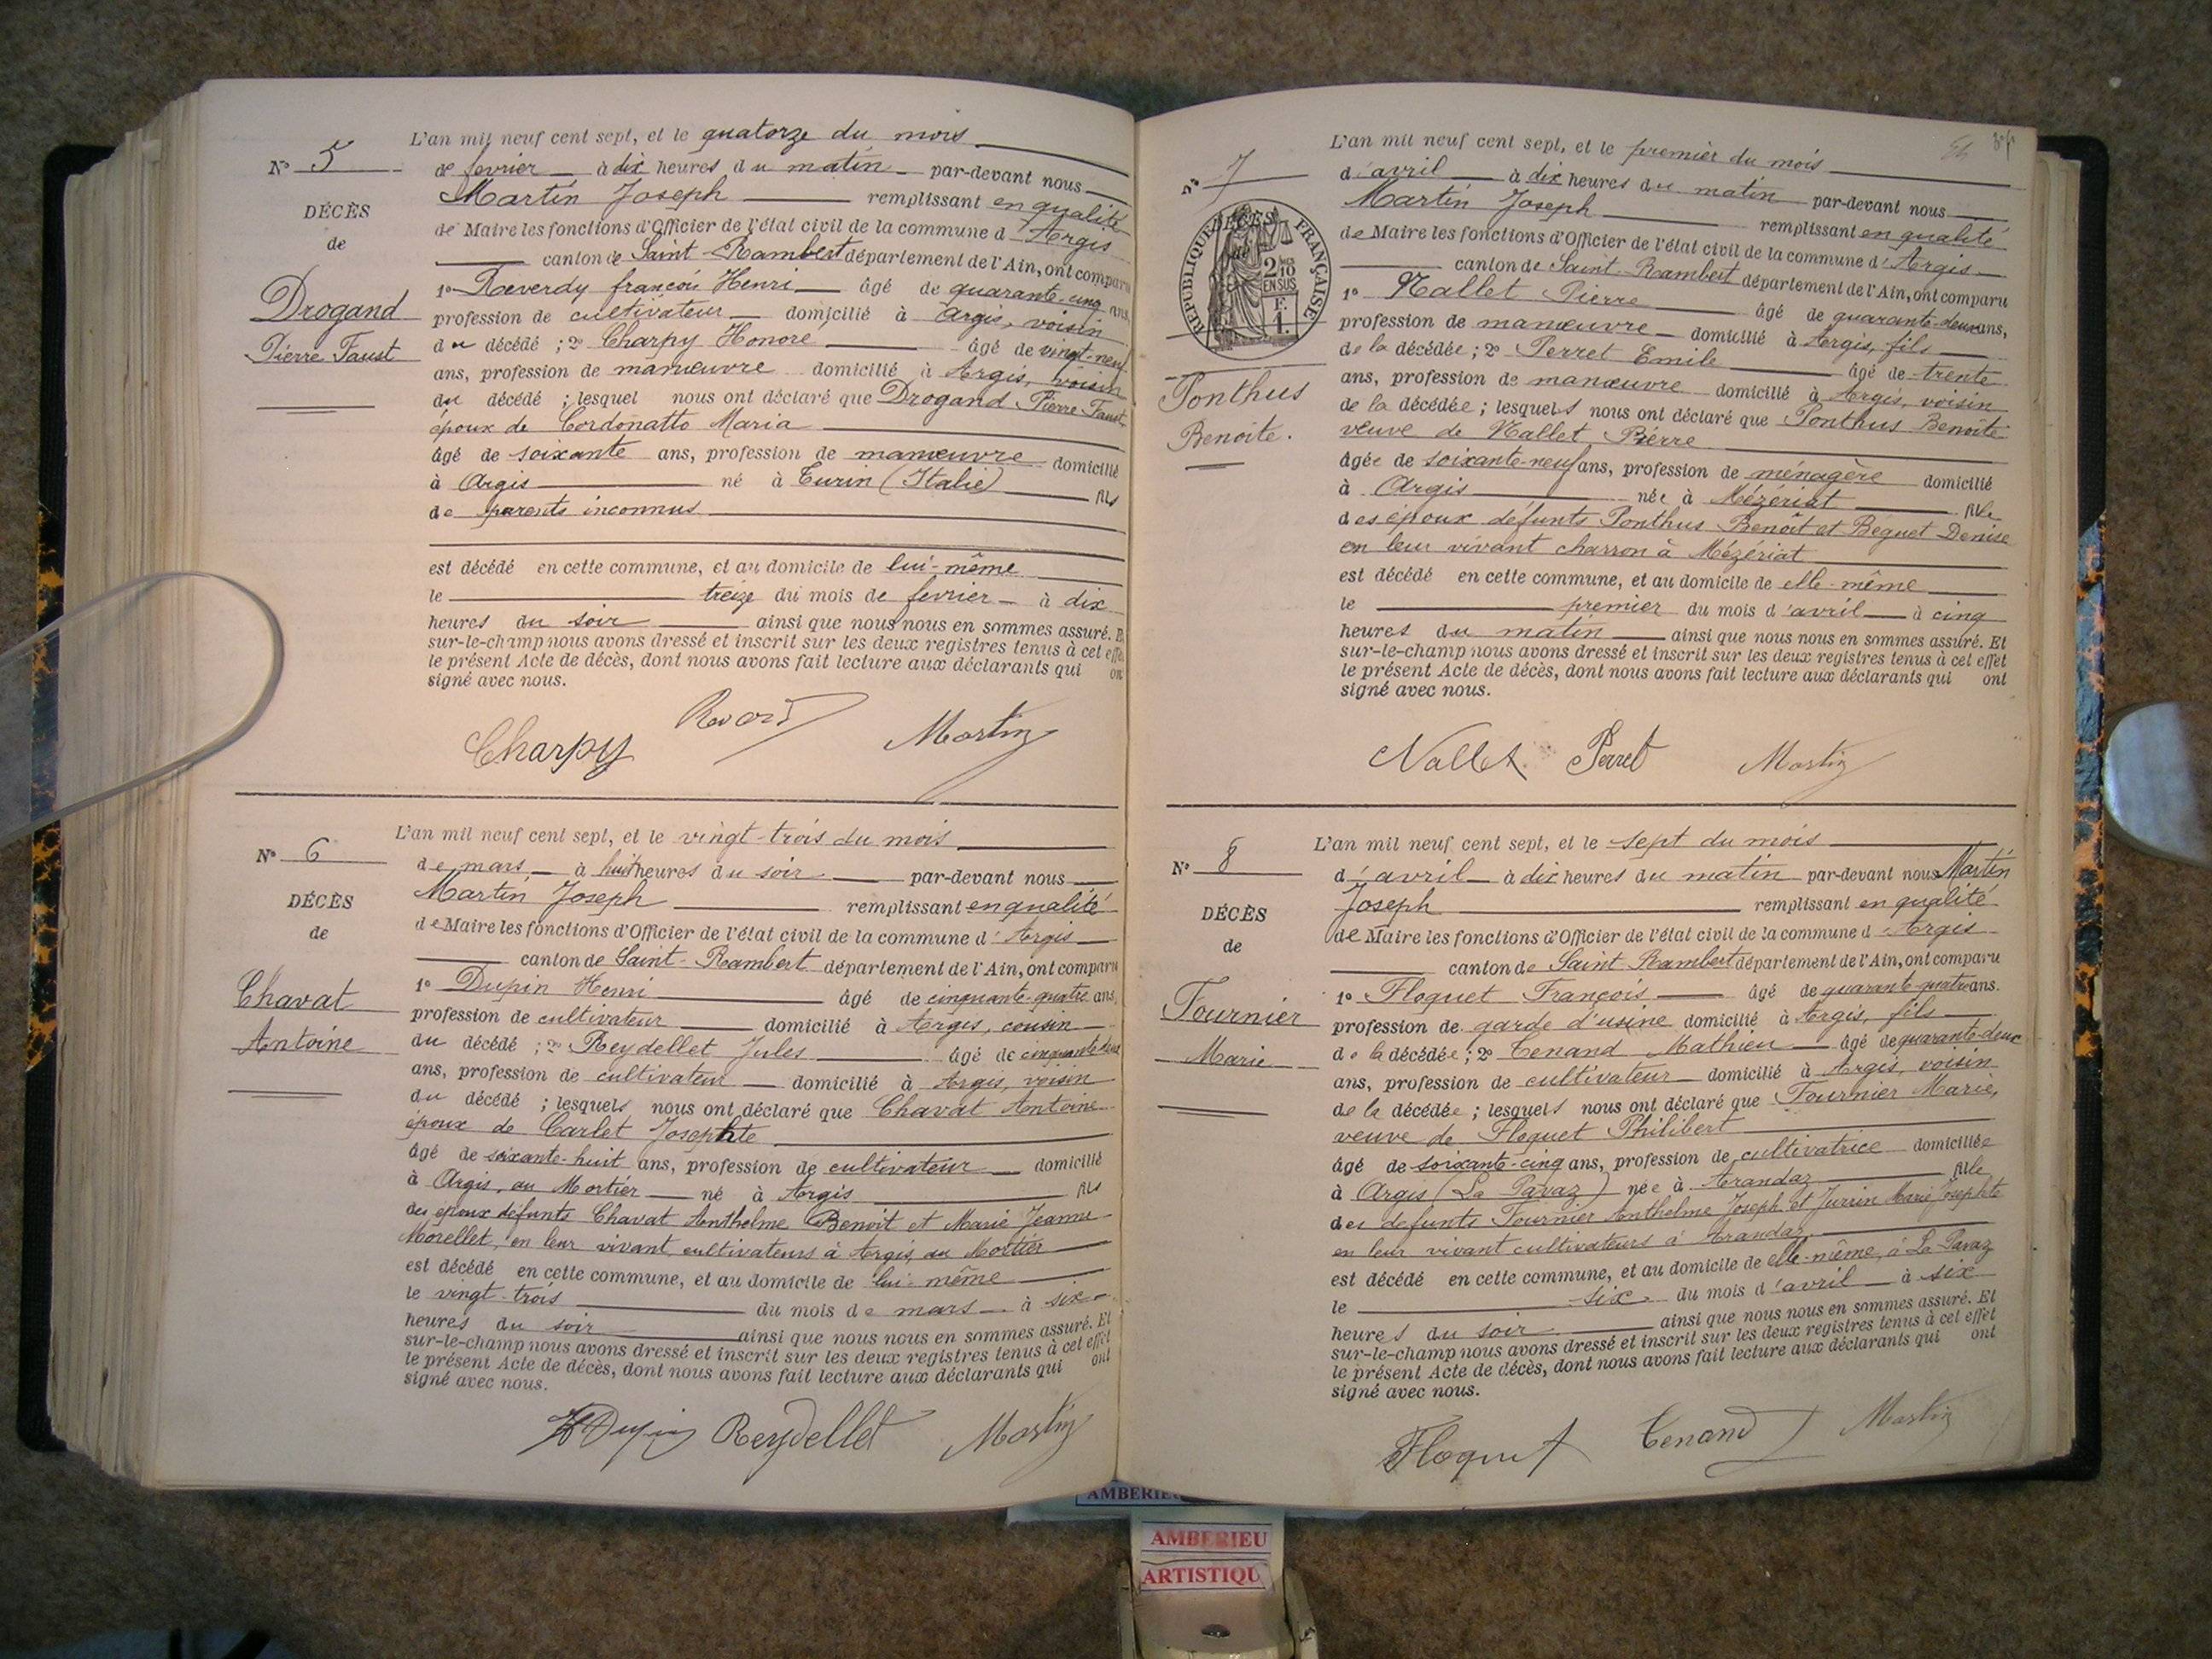 N° 5
DÉCÈS
de
Drogand
Pierre Faust
L'an mil neuf cent sept, et le quatorze du mois
de fevrier à dix heures du matin par-devant nous
Martin Joseph remplissant en qualité
de Maire les fonctions d'Officier de l'état civil de la commune d'Argis
canton de Saint-Rambert département de l'Ain, ont comparu
1° Reverdy françois Henri âgé de quarante-cinq ans,
profession de cultivateur domicilié à Argis, voisin
du décédé ; 2° Charpy Honoré âgé de vingt-neuf
ans, profession de manœuvre domicilié à Argis, voisin
du décédé ; lesquel nous ont déclaré que Drogand Pierre Faust,
époux de Cordonatto Maria
âgé de soixante ans, profession de manœuvre domicilié
à Argis né à Turin (Italie) fils
de parents inconnus
est décédé en cette commune, et au domicile de lui-même
le treize du mois de fevrier à dix
heures du soir ainsi que nous nous en sommes assuré. Et
sur-le-champ nous avons dressé et inscrit sur les deux registres tenus à cet effet
le présent Acte de décès, dont nous avons fait lecture aux déclarants qui ont
signé avec nous.
Charpy Martin
N° 6
DÉCÈS
de
Chavat
Antoine
L'an mil neuf cent sept, et le vingt-trois du mois
de mars, à huit heures du soir par-devant nous
Martin Joseph remplissant en qualité
de Maire les fonctions d'Officier de l'état civil de la commune d'Argis
canton de Saint-Rambert département de l'Ain, ont comparu
1° Dupin Henri âgé de cinquante-quatre ans,
profession de cultivateur domicilié à Argis, cousin
du décédé ; 2° Reydellet Jules âgé de cinquante
ans, profession de cultivateur domicilié à Argis, voisin
du décédé ; lesquels nous ont déclaré que Chavat Antoine
époux de Carlet Josephte
âgé de soixante-huit ans, profession de cultivateur domicilié
à Argis, au Mortier né à Argis fils
des époux défunts Chavat Anthelme Benoit et Marie Jeanne
Morellet, en leur vivant cultivateurs à Argis, au Mortier
est décédé en cette commune, et au domicile de lui-même
le vingt-trois du mois de mars à six
heures du soir ainsi que nous nous en sommes assuré. Et
sur-le-champ nous avons dressé et inscrit sur les deux registres tenus à cet effet
le présent Acte de décès, dont nous avons fait lecture aux déclarants qui ont
signé avec nous.
HDupin Reydellet Martin
N° 7
DÉCÈS
de
RÉPUBLIQUE FRANÇAISE
2/10 EN SUS
Ponthus
Benoite.
L'an mil neuf cent sept, et le premier du mois
d'avril à dix heures du matin par-devant nous
Martin Joseph remplissant en qualité
de Maire les fonctions d'Officier de l'état civil de la commune d'Argis
canton de Saint-Rambert département de l'Ain, ont comparu
1° Nallet Pierre âgé de quarante-deux ans,
profession de manœuvre domicilié à Argis, fils
de la décédée ; 2° Perret Emile âgé de trente
ans, profession de manœuvre domicilié à Argis, voisin
de la décédée ; lesquels nous ont déclaré que Ponthus Benoite
veuve de Nallet Pierre
âgée de soixante-neuf ans, profession de ménagère domicilié
à Argis née à Mézériat fille
des époux défunts Ponthus Benoit et Béguet Denise
en leur vivant charron à Mézériat
est décédé en cette commune, et au domicile de elle-même
le premier du mois d'avril à cinq
heures du matin ainsi que nous nous en sommes assuré. Et
sur-le-champ nous avons dressé et inscrit sur les deux registres tenus à cet effet
le présent Acte de décès, dont nous avons fait lecture aux déclarants qui ont
signé avec nous.
Nallet Perret Martin
N° 8
DÉCÈS
de
Fournier
Marie
L'an mil neuf cent sept, et le sept du mois
d'avril à dix heures du matin par-devant nous Martin
Joseph remplissant en qualité
de Maire les fonctions d'Officier de l'état civil de la commune d'Argis
canton de Saint Rambert département de l'Ain, ont comparu
1° Floquet François âgé de quarante-quatre ans.
profession de garde d'usine domicilié à Argis, fils
de la décédée ; 2° Tenand Mathieu âgé de quarante-deux
ans, profession de cultivateur domicilié à Argis, voisin
de la décédée ; lesquels nous ont déclaré que Fournier Marie,
veuve de Floquet Philibert
âgé de soixante-cinq ans, profession de cultivatrice domiciliée
à Argis (La Pavaz) née à Arandaz fille
des défunts Fournier Anthelme Joseph et Juvin Marie Josephte
en leur vivant cultivateurs à Arandaz,
est décédé en cette commune, et au domicile de elle-même, à La Pavaz
le six du mois d'avril à six
heures du soir ainsi que nous nous en sommes assuré. Et
sur-le-champ nous avons dressé et inscrit sur les deux registres tenus à cet effet
le présent Acte de décès, dont nous avons fait lecture aux déclarants qui ont
signé avec nous.
Floquet Tenand Martin
AMBERIEU
AMBERIEU
ARTISTIQU